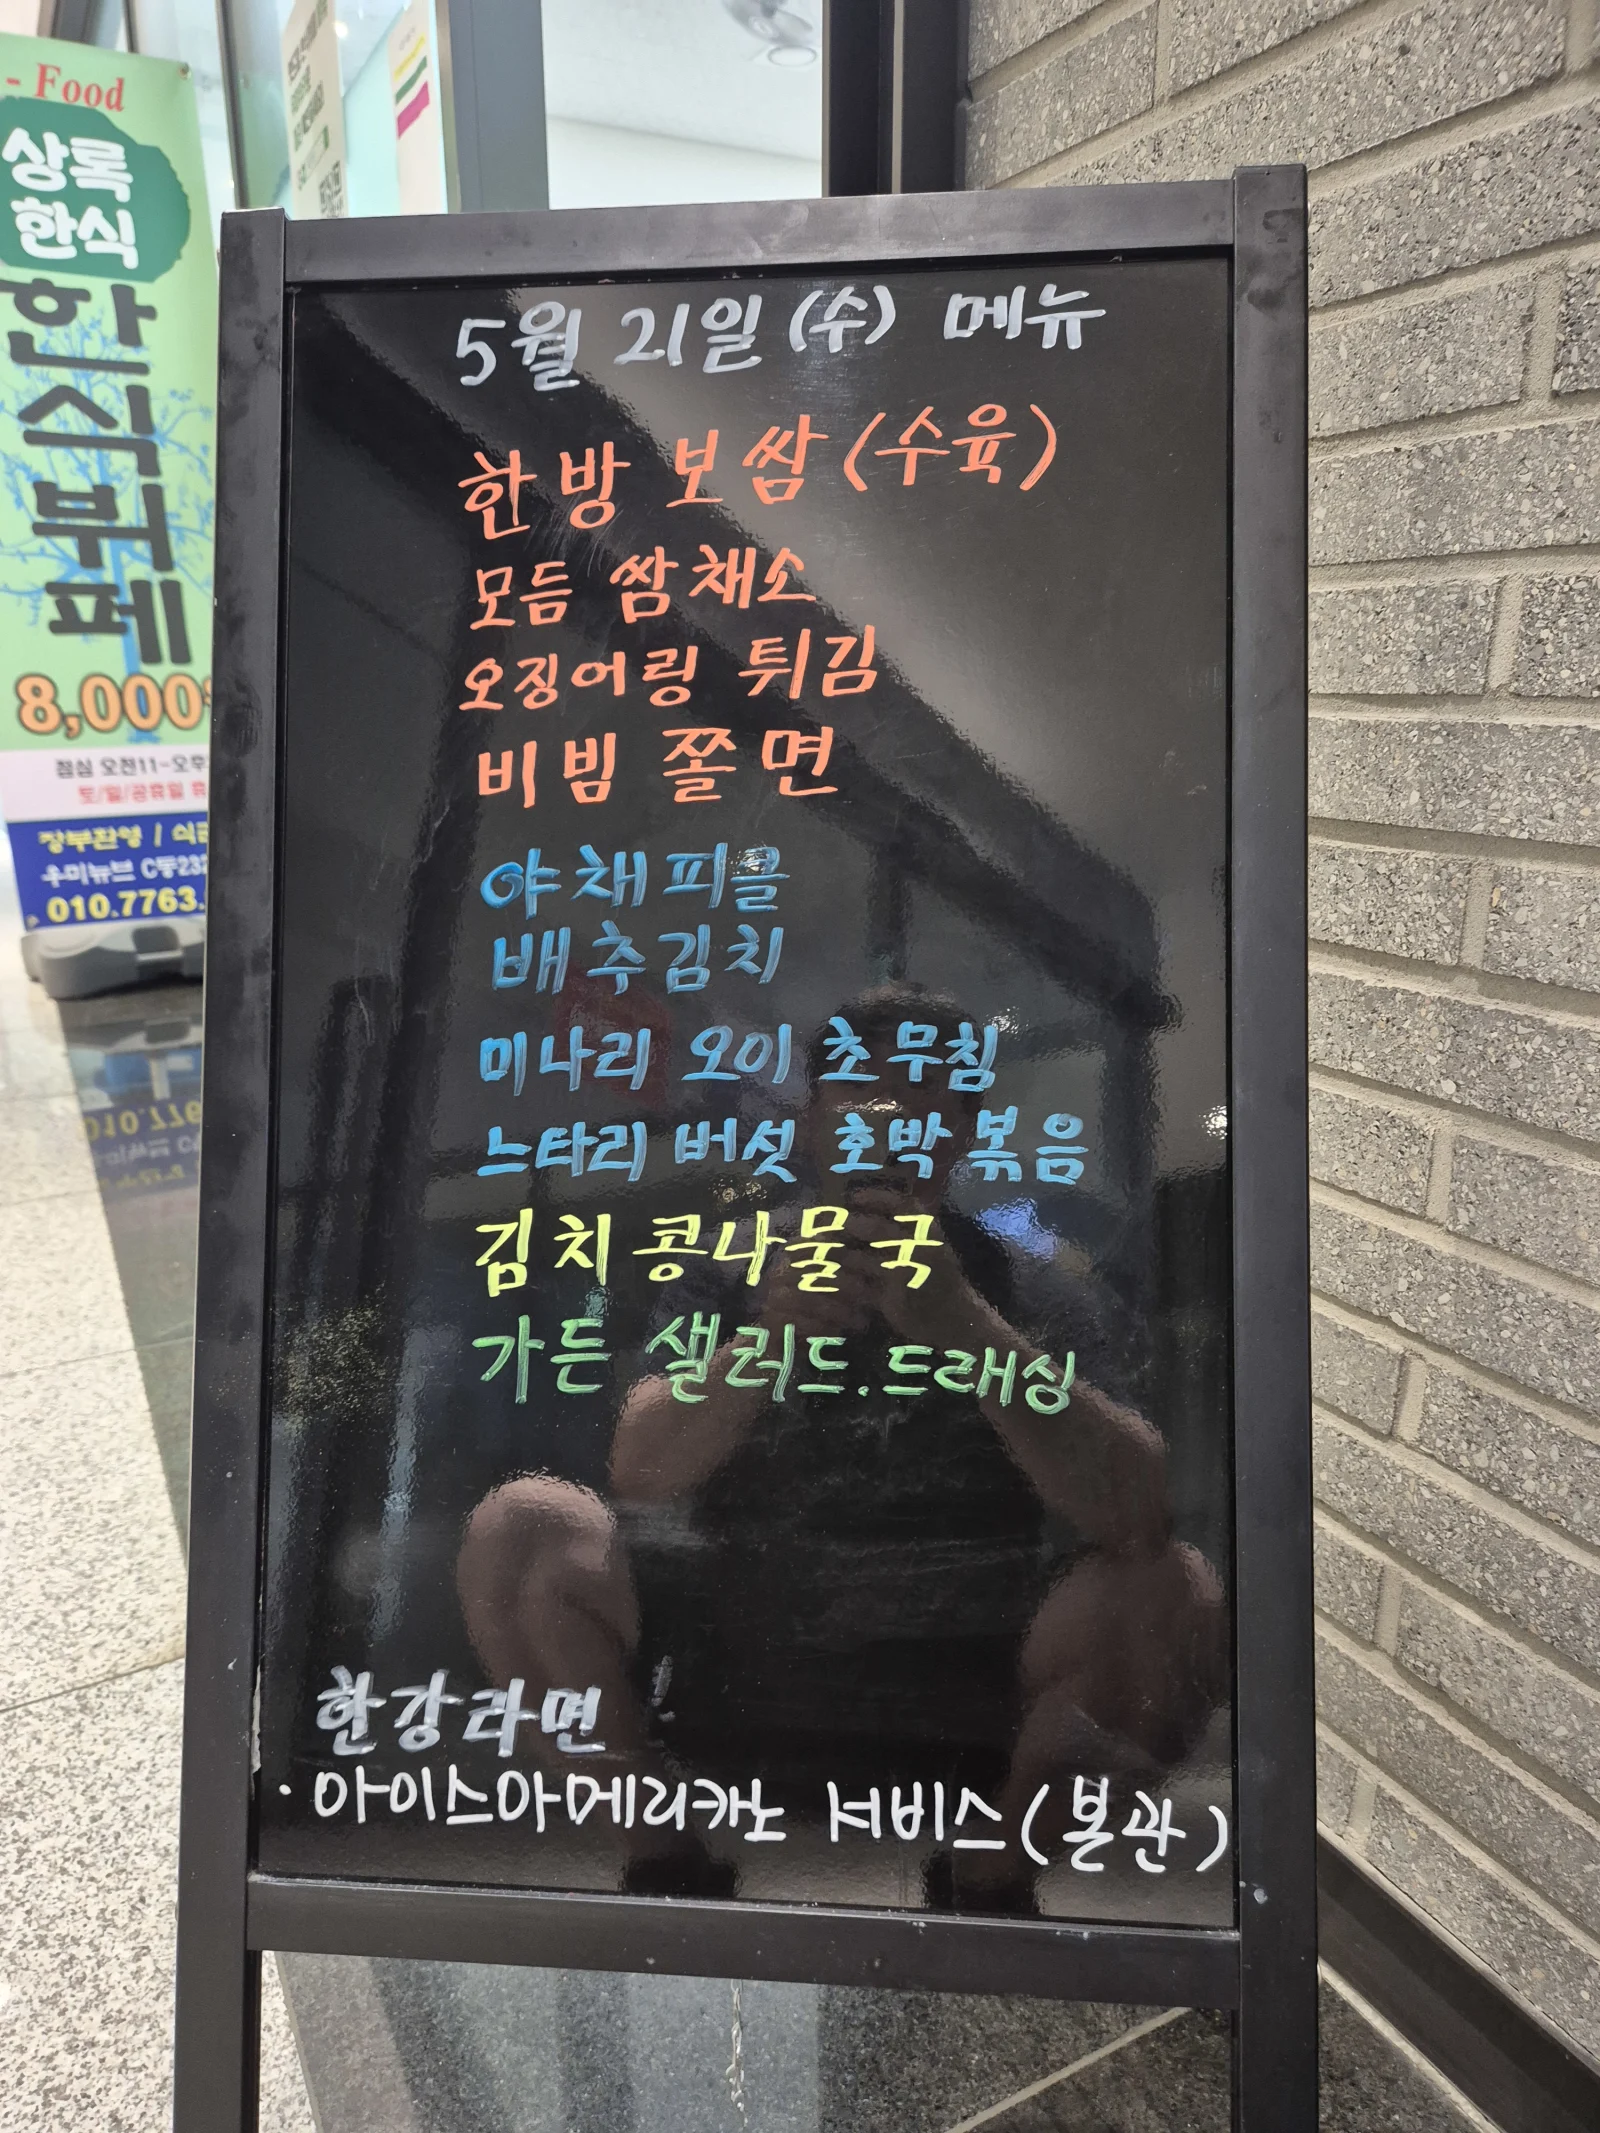 - Food
상록
한식
한식뷔페
8,000
점심 오전11~오후
토/일/공휴일 휴
장부환영 / 식
우미뉴브 C동232
010.7763.
5월 21일 (수) 메뉴
한방 보쌈 (수육)
모듬 쌈채소
오징어링 튀김
비빔 쫄면
야채피클
배추김치
미나리 오이 초무침
느타리 버섯 호박 볶음
김치콩나물국
가든 샐러드.드래싱
한강라면
· 아이스아메리카노 서비스 (본관)